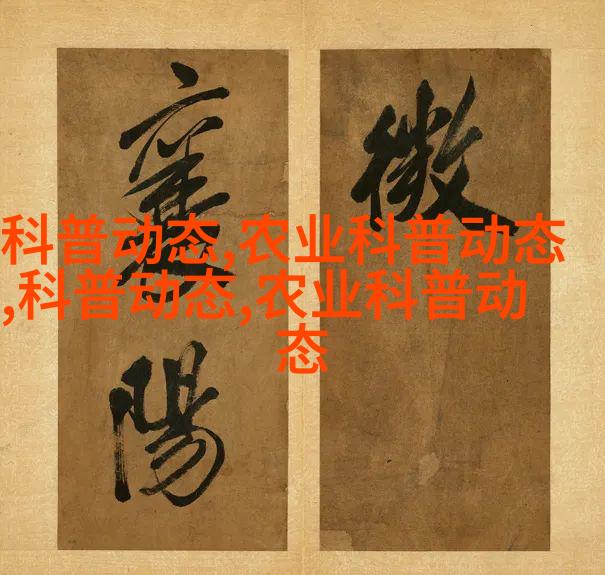 微
襄
陽
科普动态,农业科普动态
,科普动态,农业科普动
态